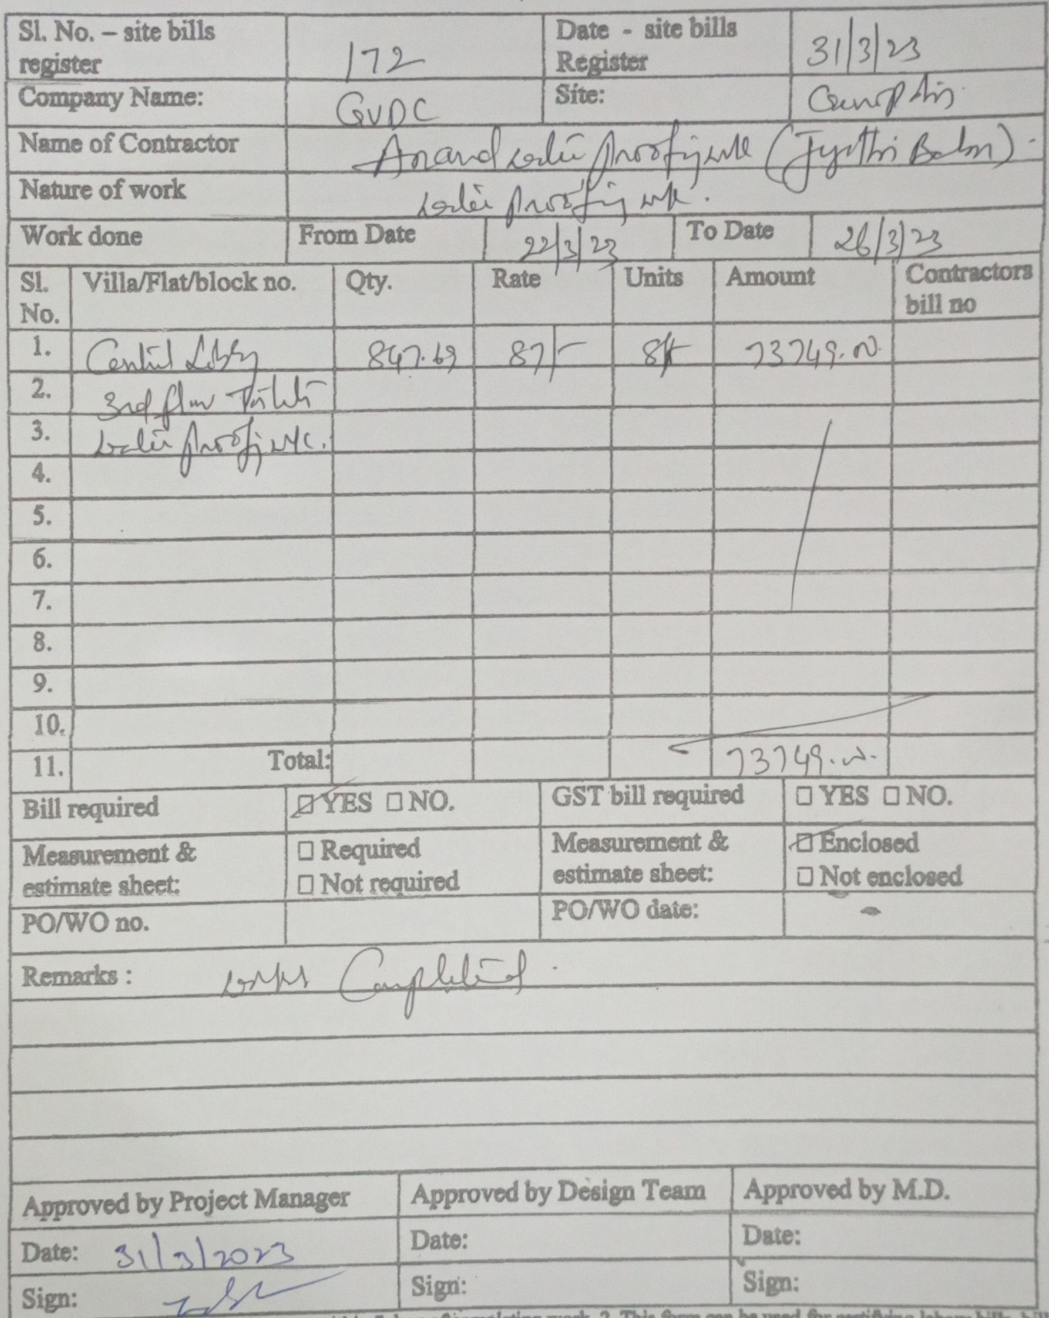 Sl. No. – site bills register 172 Date - site bills Register 31/3/23
Company Name: GVDC Site:
Name of Contractor Anand proofing (Jyothi Babu).
Nature of work proofing wk.
Work done From Date 22/3/23 To Date 26/3/23
Sl. No. Villa/Flat/block no. Qty. Rate Units Amount Contractors bill no
1. Central Lobby 847.69 87/- Sft 73749.00
2. 3rd floor Toilet
3. proofing wk.
4.
5.
6.
7.
8.
9.
10.
11. Total: 73749.00
Bill required ☑ YES ☐ NO. GST bill required ☐ YES ☐ NO.
Measurement & estimate sheet: ☐ Required ☐ Not required Measurement & estimate sheet: ☑ Enclosed ☐ Not enclosed
PO/WO no. PO/WO date: -
Remarks : works Completed.
Approved by Project Manager Approved by Design Team Approved by M.D.
Date: 31/3/2023 Date: Date:
Sign: Sign: Sign: